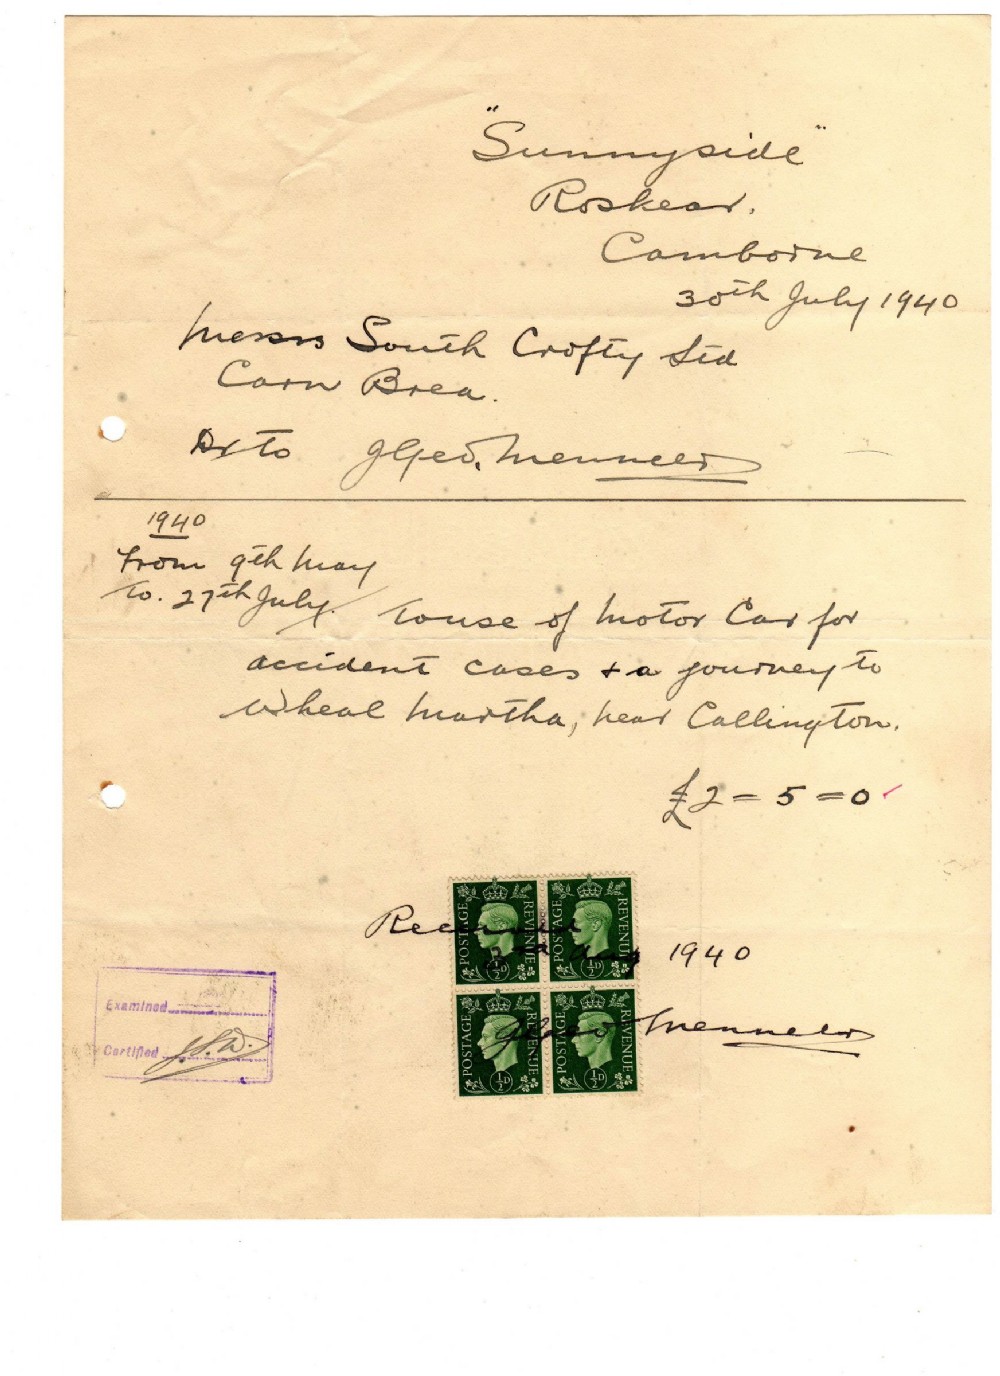 "Sunnyside"
Roskear.
Camborne
30th July 1940
Messrs South Crofty Ltd
Carn Brea.
Dr to J Geo. Menneer
1940
From 9th May
To. 27th July. To use of Motor Car for
accident cases & a journey to
Wheal Martha, near Callington.
£2=5=0
POSTAGE REVENUE ½D
POSTAGE REVENUE ½D
Received
Aug 1940
POSTAGE REVENUE ½D
POSTAGE REVENUE ½D
J Geo Menneer
Examined
Certified